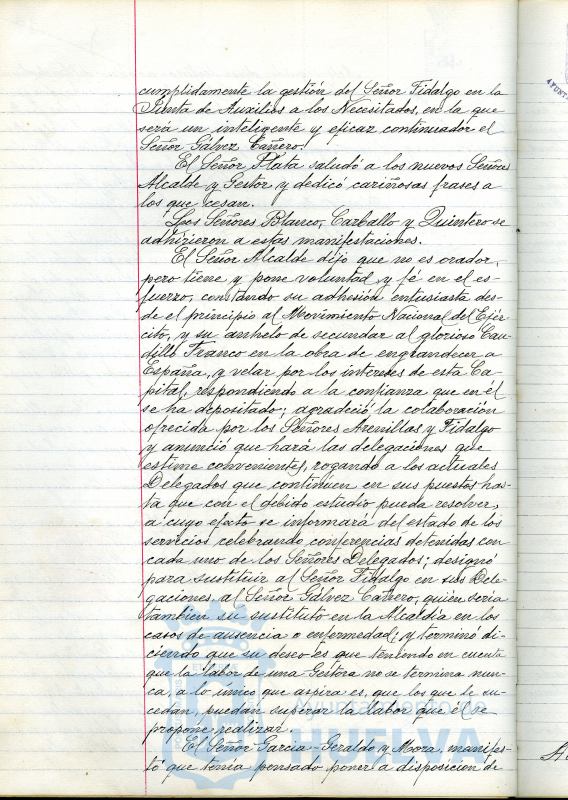 cumplidamente la gestión del Señor Fidalgo en la
Junta de Auxilios a los Necesitados, en la que
sera un inteligente y eficaz continuador el
Señor Gálvez Cañero.
El Señor Plata saludó a los nuevos Señores
Alcalde y Gestor y dedicó cariñosas frases a
los que cesan.
Los Señores Blanco, Carballo y Quintero se
adhirieron a estas manifestaciones.
El Señor Alcalde dijo que no es orador,
pero tiene y pone voluntad y fé en el es-
fuerzo, constando su adhesión entusiasta des-
de el principio al Movimiento Nacional del Ejér-
cito, y su anhelo de secundar al glorioso Cau-
dillo Franco en la obra de engrandecer a
España, y velar por los intereses de esta Ca-
pital, respondiendo a la confianza que en él
se ha depositado; agradeció la colaboración
ofrecida por los Señores Arenillas y Fidalgo
y anunció que hará las delegaciones que
estime convenientes, rogando a los actuales
Delegados que continúen en sus puestos has-
ta que con el debido estudio pueda resolver,
a cuyo efecto se informará del estado de los
servicios celebrando conferencias detenidas con
cada uno de los Señores Delegados; designó
para sustituir al Señor Fidalgo en sus Dele-
gaciones, al Señor Gálvez Cañero, quién seria
tambien su sustituto en la Alcaldía en los
casos de ausencia o enfermedad; y terminó di-
ciendo que su deseo es que teniendo en cuenta
que la labor de una Gestora no se termina nun-
ca, a lo único que aspira es, que los que le su-
cedan, puedan superar la labor que él se
propone realizar.
El Señor Garcia-Geraldo y Mora, manifes-
tó que tenía pensado poner a disposición de
Ayuntamiento de
HUELVA